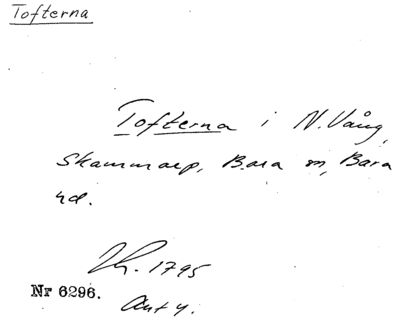 Tofterna
Tofterna i N. Vång,
Skammarp, Bara sn, Bara
hd.
1795
Nr 6296.